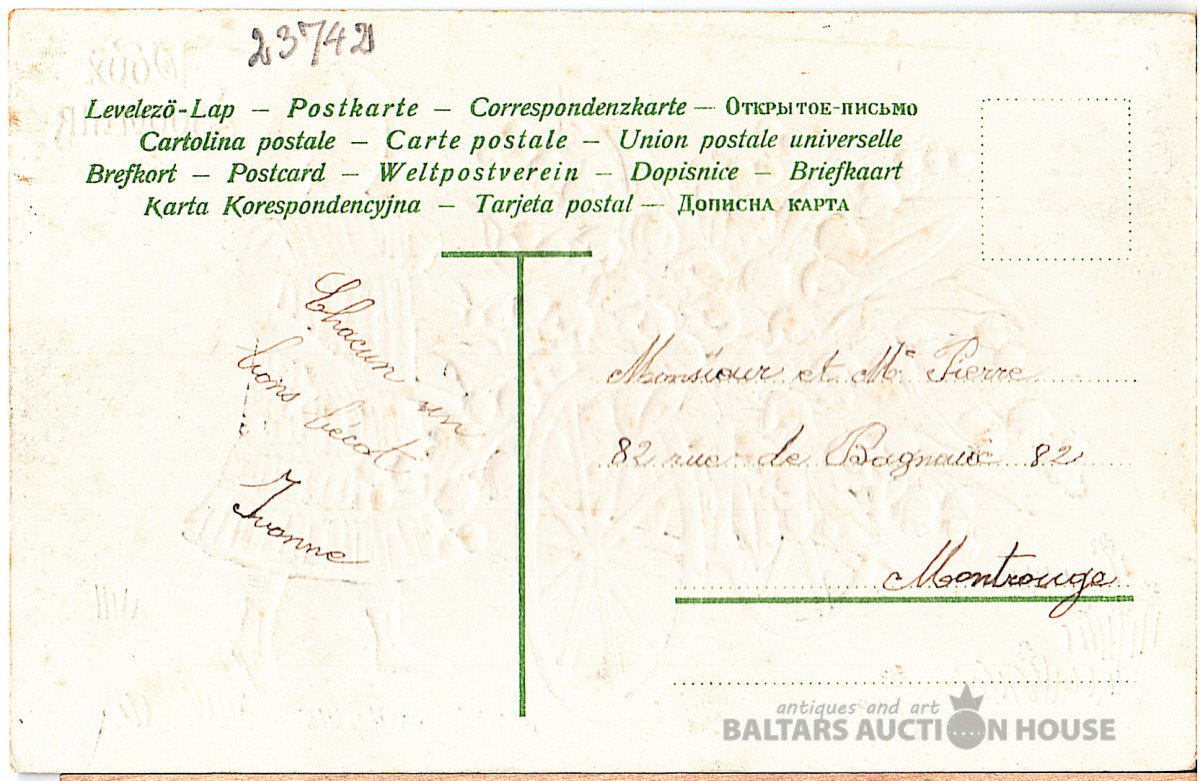 23742
Levelezö-Lap — Postkarte — Correspondenzkarte — Открытое-письмо
Cartolina postale — Carte postale — Union postale universelle
Brefkort — Postcard — Weltpostverein — Dopisnice — Briefkaart
Karta Korespondencyjna — Tarjeta postal — Дописна карта
Chacun un
bons bécot
Yvonne
Monsieur et Me Pierre
82 rue de Bagneux 82
Montrouge
antiques and art
BALTARS AUCTION HOUSE